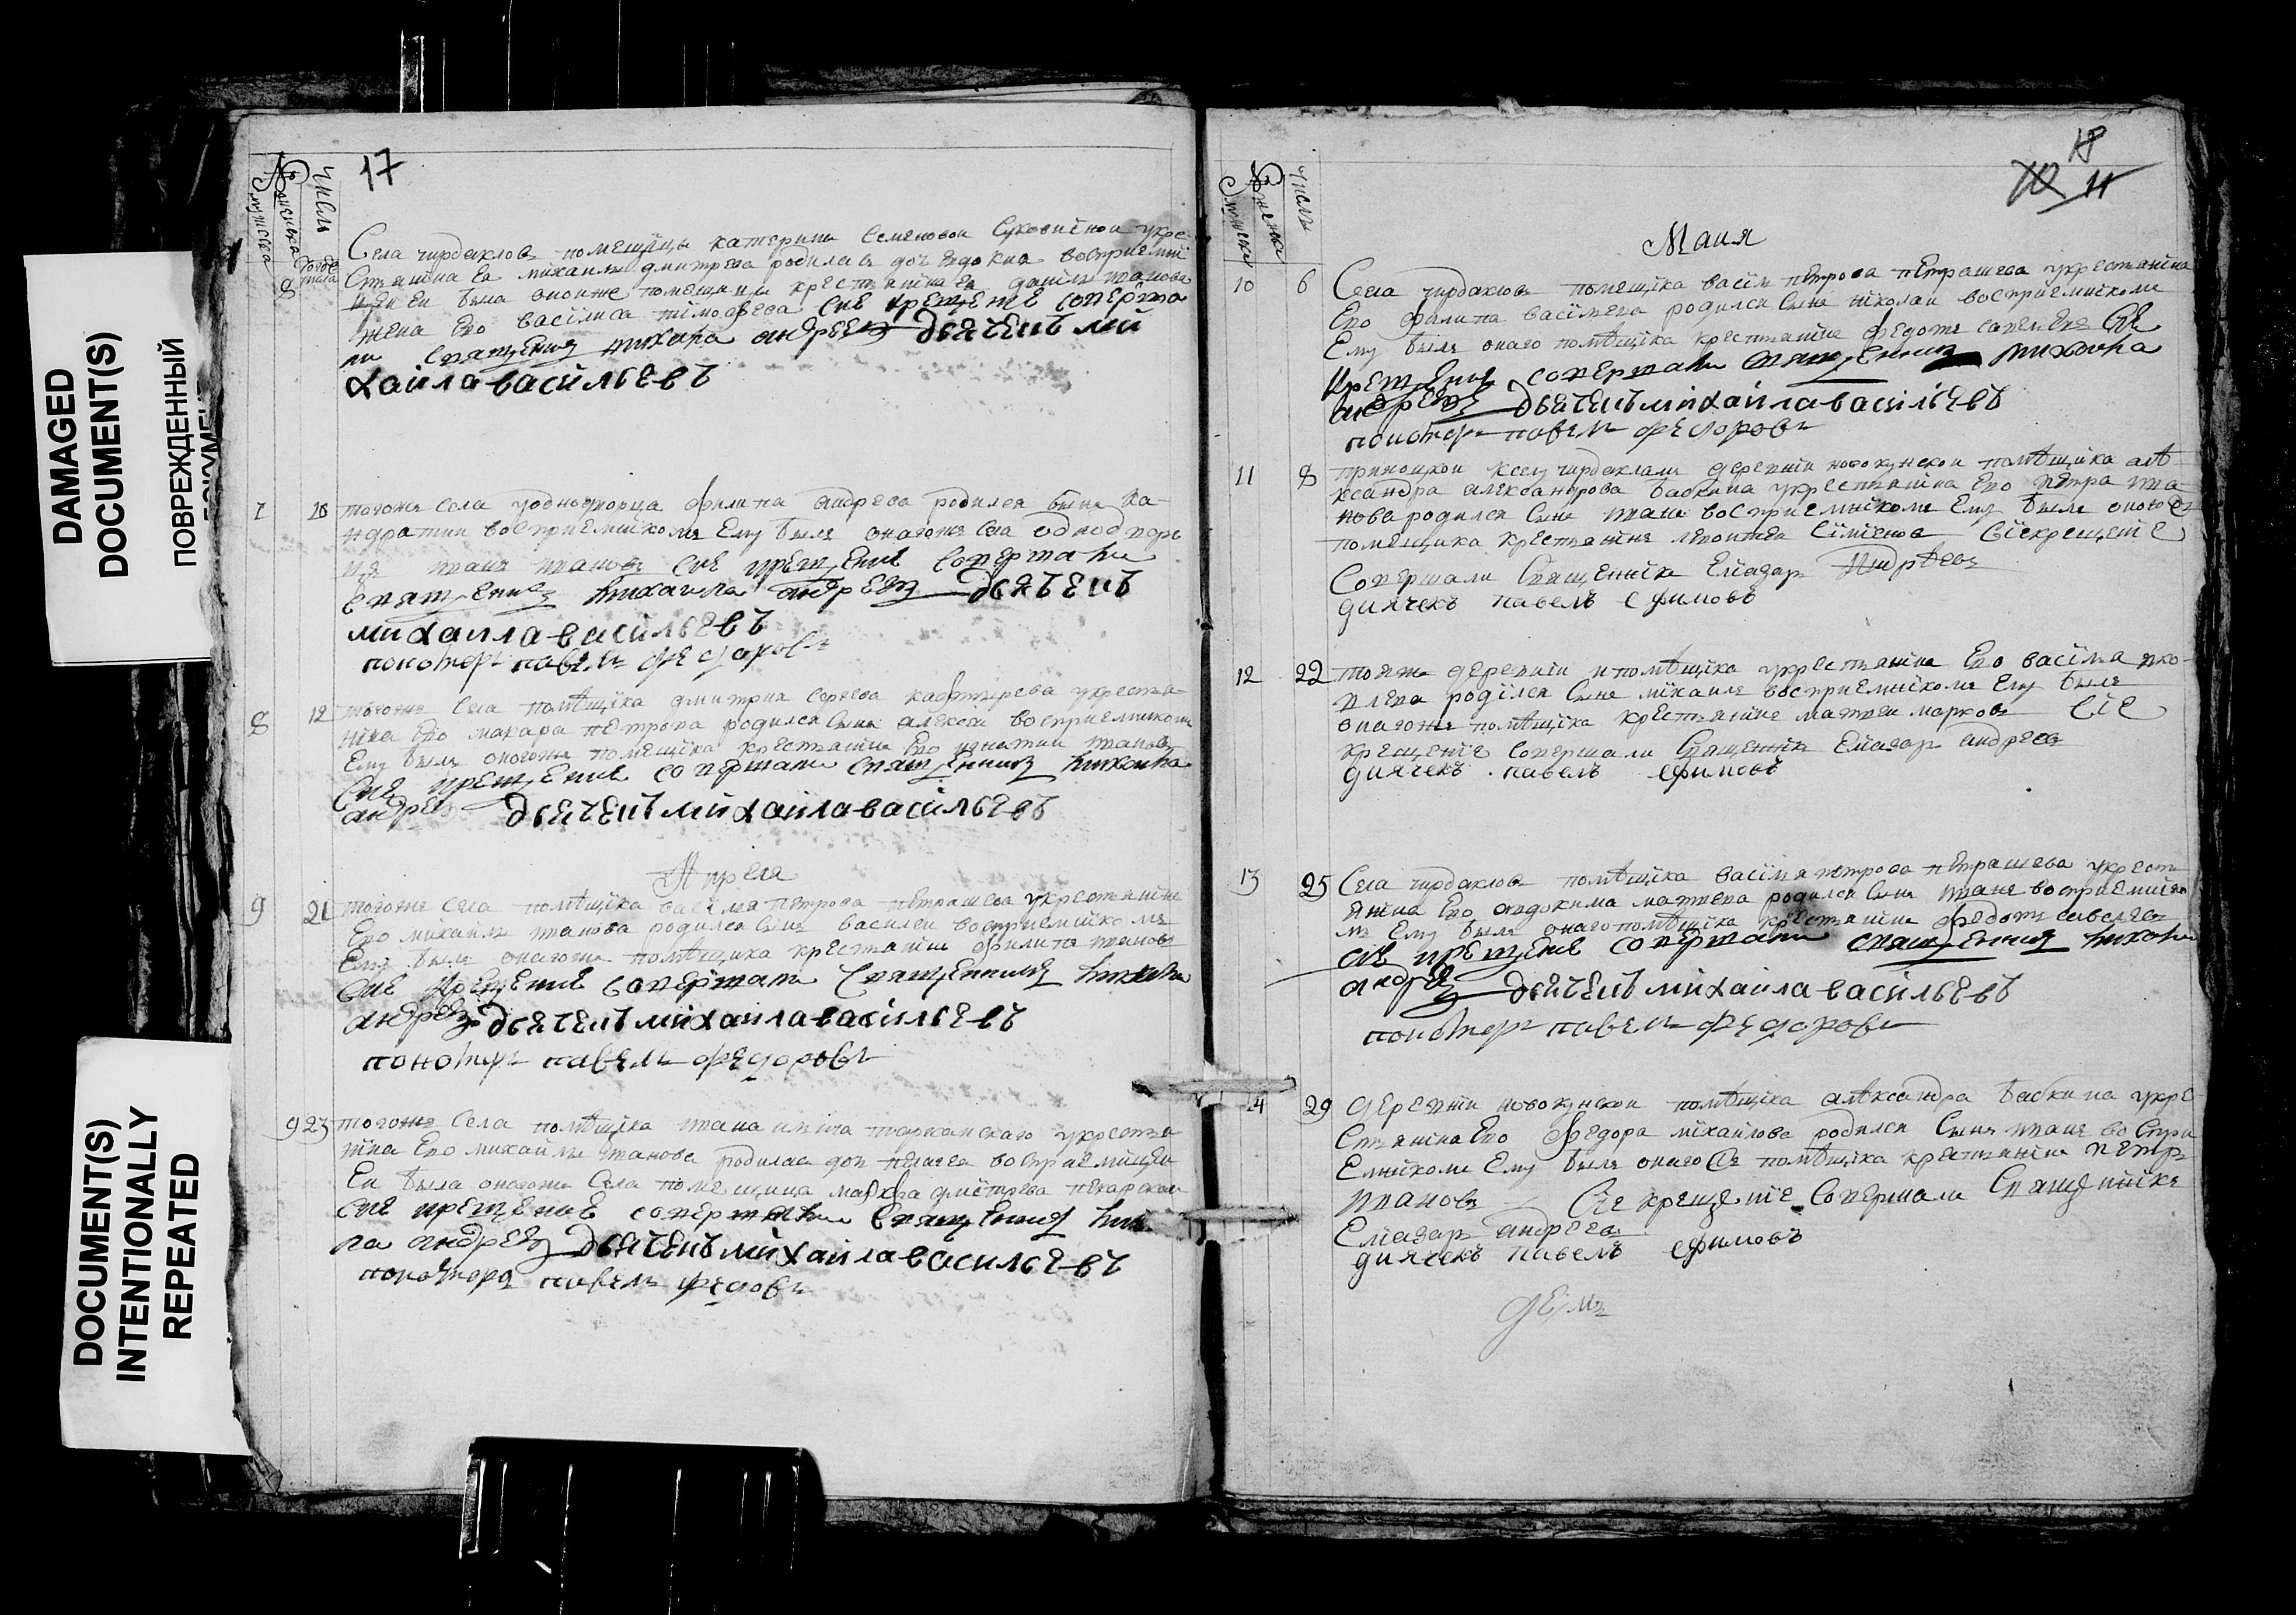 DAMAGED
DOCUMENT(S)
ПОВРЕЖДЕННЫЙ
DOCUMENT(S)
INTENTIONALLY
REPEATED
17
числа
Села чирдаклов помещицы катерины Семеновои укре
стянина Ея михаилы дмитрева родилась доч евдокиа восприемни
цеи Еи была оноиже помещицы крестянина Ея данилы иванова
жена Ево василиса тимофеева сие крещение соверша
ли Священникъ андреевъ дьячекъ ми
хаила васильевъ
7
тогожъ села уоднодворца филипа андрева родился сынъ ка
ндратии восприемникомъ Ему былъ оногожъ села однодворе
цъ иванъ ивановъ сие крещение совершали
священикъ андреевъ дьячекъ
михаила васильевъ
пономарь павелъ федоровъ
8
12
тогожъ села помѣщика дмитрия сергева укрестья
нина Ево макара петрова родился сынъ алексеи восприемникомъ
Ему былъ оногожъ помещика крестянинъ Ево игнатии ивановъ
сие крещение совершали священникъ
андреевъ дьячекъ михаила васильевъ
Апреля
9
21
тогожъ села помѣщика василя петрова петрашева укрестянина
Ево михаилы иванова родился сынъ василеи восприемникомъ
Ему былъ оногожъ помѣщика крестянинъ филипъ ивановъ
сие крещение совершали священникъ
андреевъ дьячекъ михаила васильевъ
пономарь павелъ федоровъ
9 23
тогожъ села помѣщика ивана укрестья
нина Ево михаилы иванова родилас доч пелагея восприемницеи
Еи была оногожъ села помещица марфа дмитрева
сие крещение совершали священникъ
андреевъ дьячекъ михаила васильевъ
павелъ
18
11
числа
Маия
10
6
Села чирдаклов помещика василя петрова петрашева укрестянина
Ево филипа василева родился сынъ николаи восприемникомъ
Ему былъ оного помѣщика крестянинъ федотъ савелевъ сие
крещение совершали священникъ
андреевъ дьячекъ михаила васильевъ
пономарь павелъ федоровъ
11
8
приходкои кселу чирдаклам деревни новокунскои помѣщика алѣ
ксандра александрова бабкина укрестянина Ево петра ива
нова родился сынъ иванъ восприемникомъ Ему былъ оного
помещика крестянинъ леонтеи Сименов сиекрещение
Совершали Священникъ Елиазар Андрѣевъ
диячекъ павелъ ефимовъ
12
22
тояжъ деревни ипомѣщика укрестянина Ево василя яко
влева родился сынъ михаилъ восприемникомъ Ему былъ
оногожъ помѣщика крестянинъ матвеи марковъ сие
крещение совершали Священникъ Елиазар андреевъ
диячекъ павелъ ефимовъ
13
25
Села чирдаклов помѣщика василя петрова петрашева укрест
янина Ево авдокима матвева родился сынъ иванъ восприемнико
мъ Ему былъ оного помѣщика крестянинъ федотъ савелевъ
сие крещение совершали священникъ
андреевъ дьячекъ михаила васильевъ
пономарь павелъ федоровъ
14
29
деревни новокунскои помѣщика алѣксандра бабкина укре
стянина Ево федора михаилова родился сынъ иванъ воспри
емникомъ Ему былъ оного помѣщика крестянинъ петръ
ивановъ Сие крещение Совершали Священникъ
Елиазар андреевъ
диячекъ павелъ ефимовъ